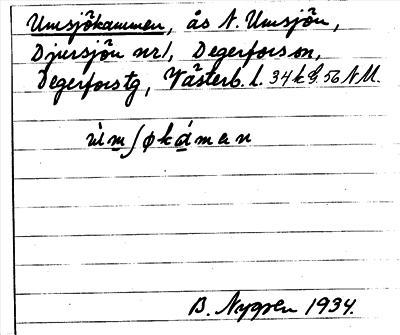 Umsjökammen, ås N. Umsjön,
Djursjön nr 1, Degerfors sn,
Degerfors tg, Västerb. l. 34 k G. 56 N M.
ùmʃøkámen
B. Nygren 1934.